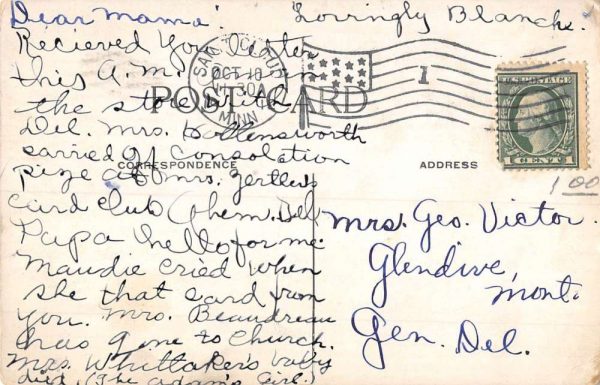 Dear Mama: Lovingly Blanch.
Recieved your letter
this A.M. am in
the store with
Del. Mrs. Hollensworth
carried off consolation
prize at Mrs. Zertler's
card club (Ahem. Tell
Papa hello for me.
Maudie cried when
she that card from
you. Mrs. Beaudreau
has gone to church.
Mrs. Whittaker's baby
died. (The Adam's Girl.)
SAINT CLOUD
OCT 10
11 30A
MINN
1
U.S. POSTAGE
1 CENT 1
POST CARD
CORRESPONDENCE
ADDRESS
1 00
Mrs. Geo. Victor.
Glendive,
Mont.
Gen. Del.